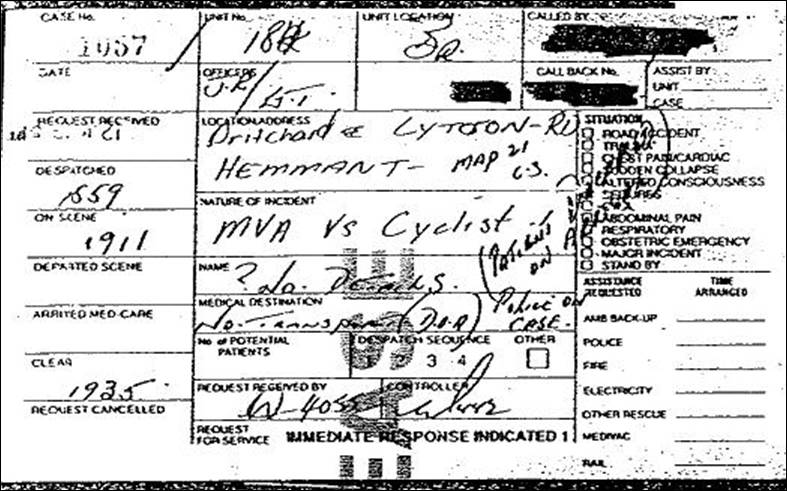 CASE No. UNIT No. UNIT LOCATION CALLED BY
1057
DATE OFFICERS CALL BACK No. ASSIST BY
UNIT
CASE
REQUEST RECEIVED LOCATION/ADDRESS SITUATION
Pritchard & Lytton-Rd
HEMMANT- MAP 21
ROAD ACCIDENT
TRAUMA
CHEST PAIN/CARDIAC
SUDDEN COLLAPSE
ALTERED CONSCIOUSNESS
SEIZURES
ABDOMINAL PAIN
RESPIRATORY
OBSTETRIC EMERGENCY
MAJOR INCIDENT
STAND BY
DESPATCHED
1859
NATURE OF INCIDENT
MVA Vs Cyclist.
ON SCENE
1911
(PATIENT ON
DEPARTED SCENE NAME
? No. DETAILS.
ASSISTANCE REQUESTED TIME ARRANGED
ARRIVED MED-CARE MEDICAL DESTINATION
No-Transport (D.O.A) Police on CASE.
AMB BACK-UP
POLICE
FIRE
ELECTRICITY
OTHER RESCUE
MEDIVAC
RAIL
No of POTENTIAL PATIENTS DESPATCH SEQUENCE OTHER
1 2 3 4
CLEAR
1935
REQUEST RECEIVED BY CONTROLLER
REQUEST CANCELLED
REQUEST FOR SERVICE IMMEDIATE RESPONSE INDICATED 1